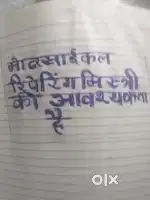 मोटरसाईकल
रिपेरिंग मिस्त्री
की आवश्यकता
है
olx